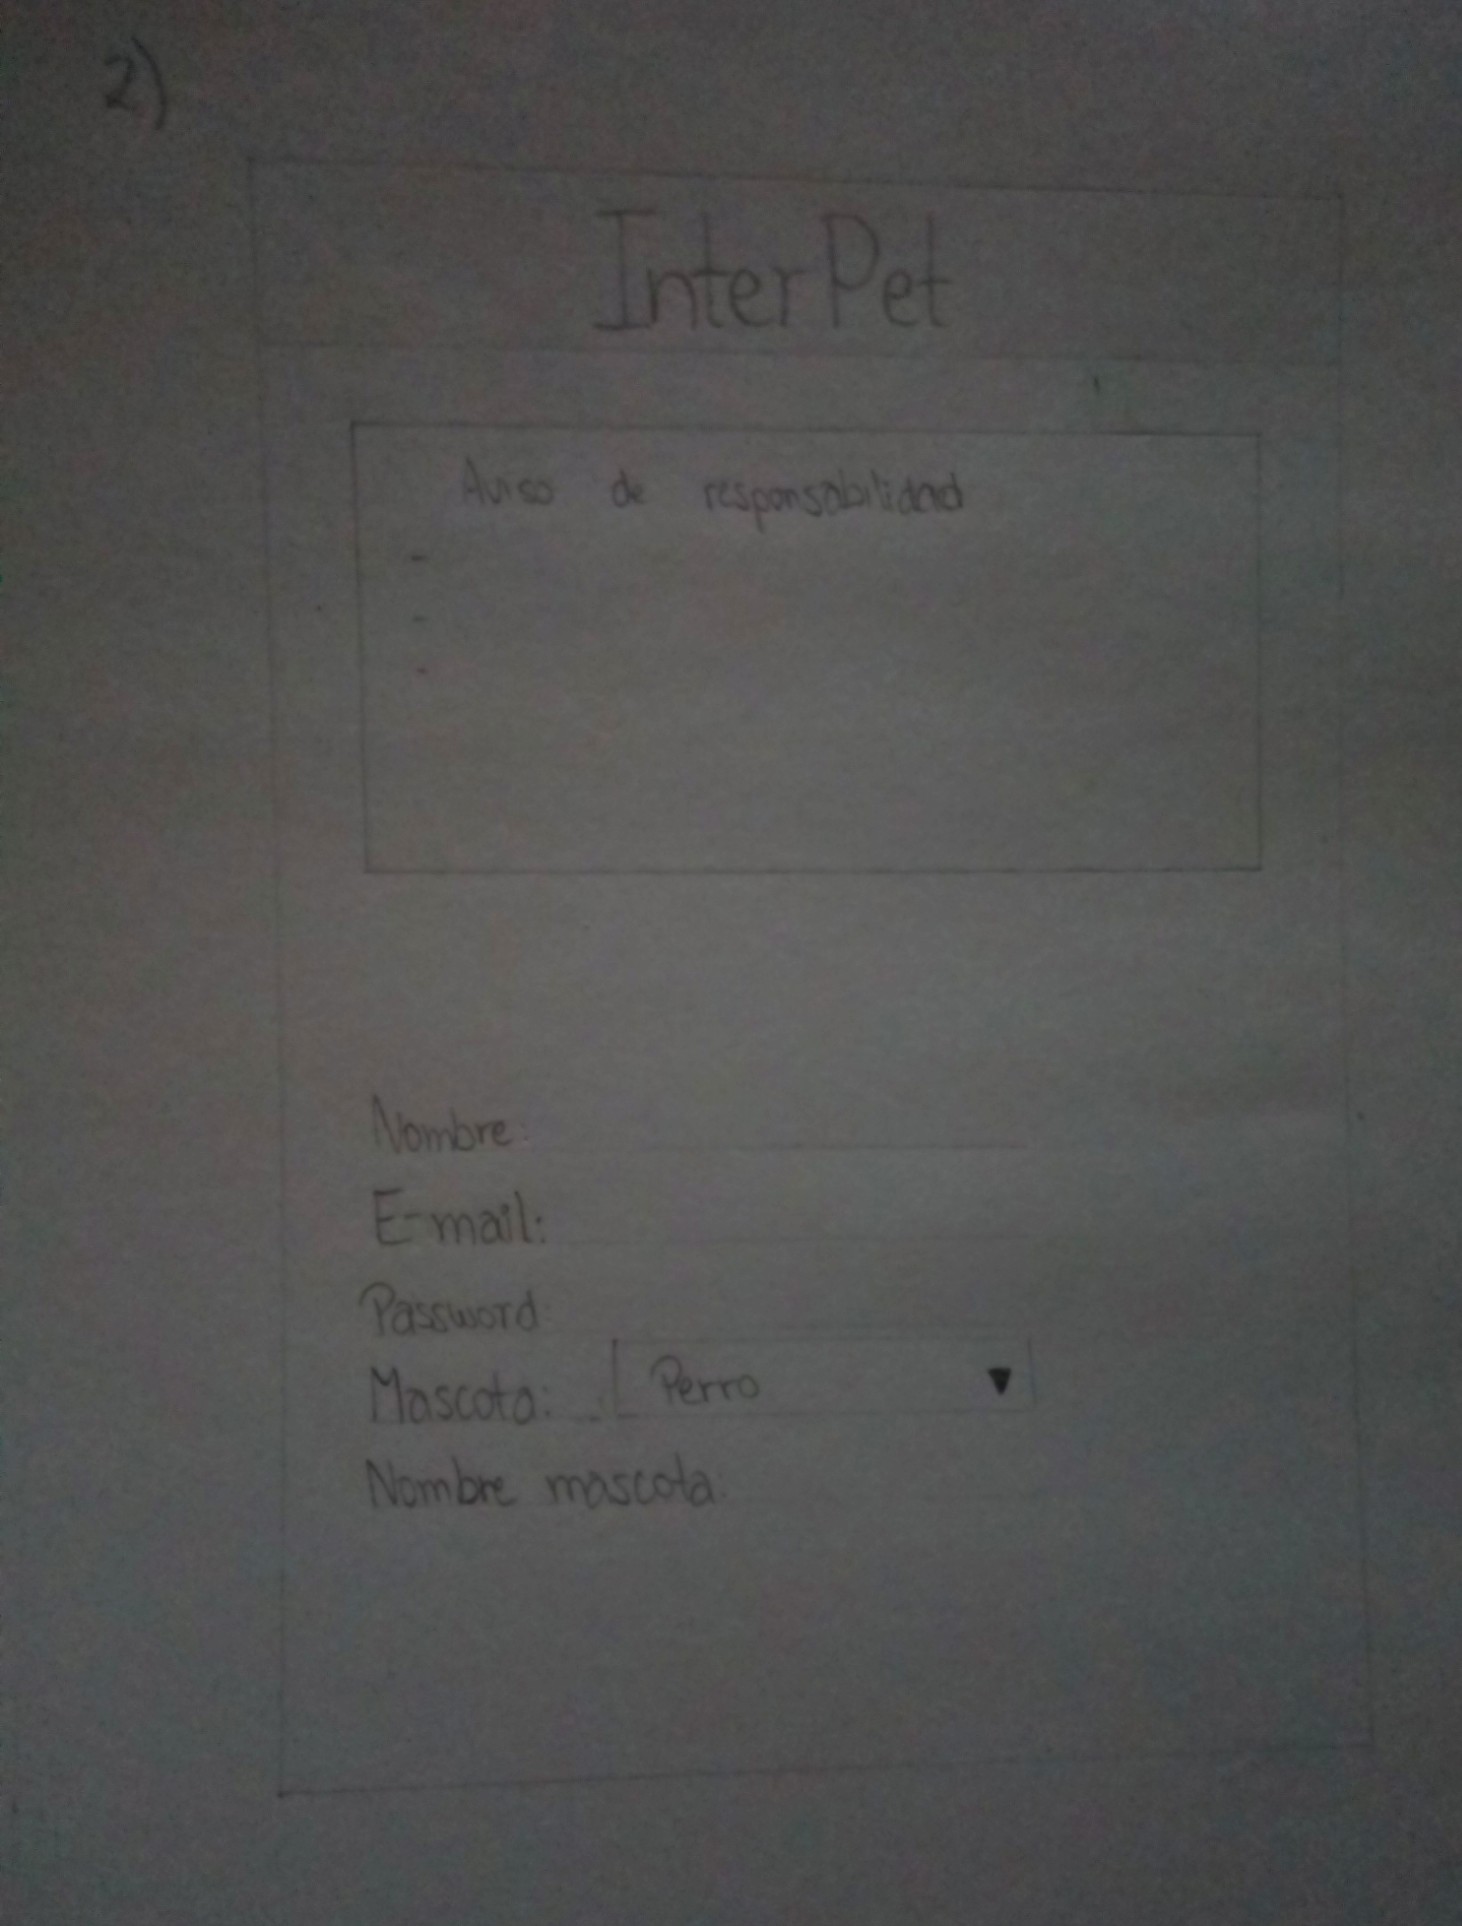 2)
InterPet
Aviso de responsabilidad
-
-
-
Nombre:
E-mail:
Password:
Mascota: Perro ▼
Nombre mascota: